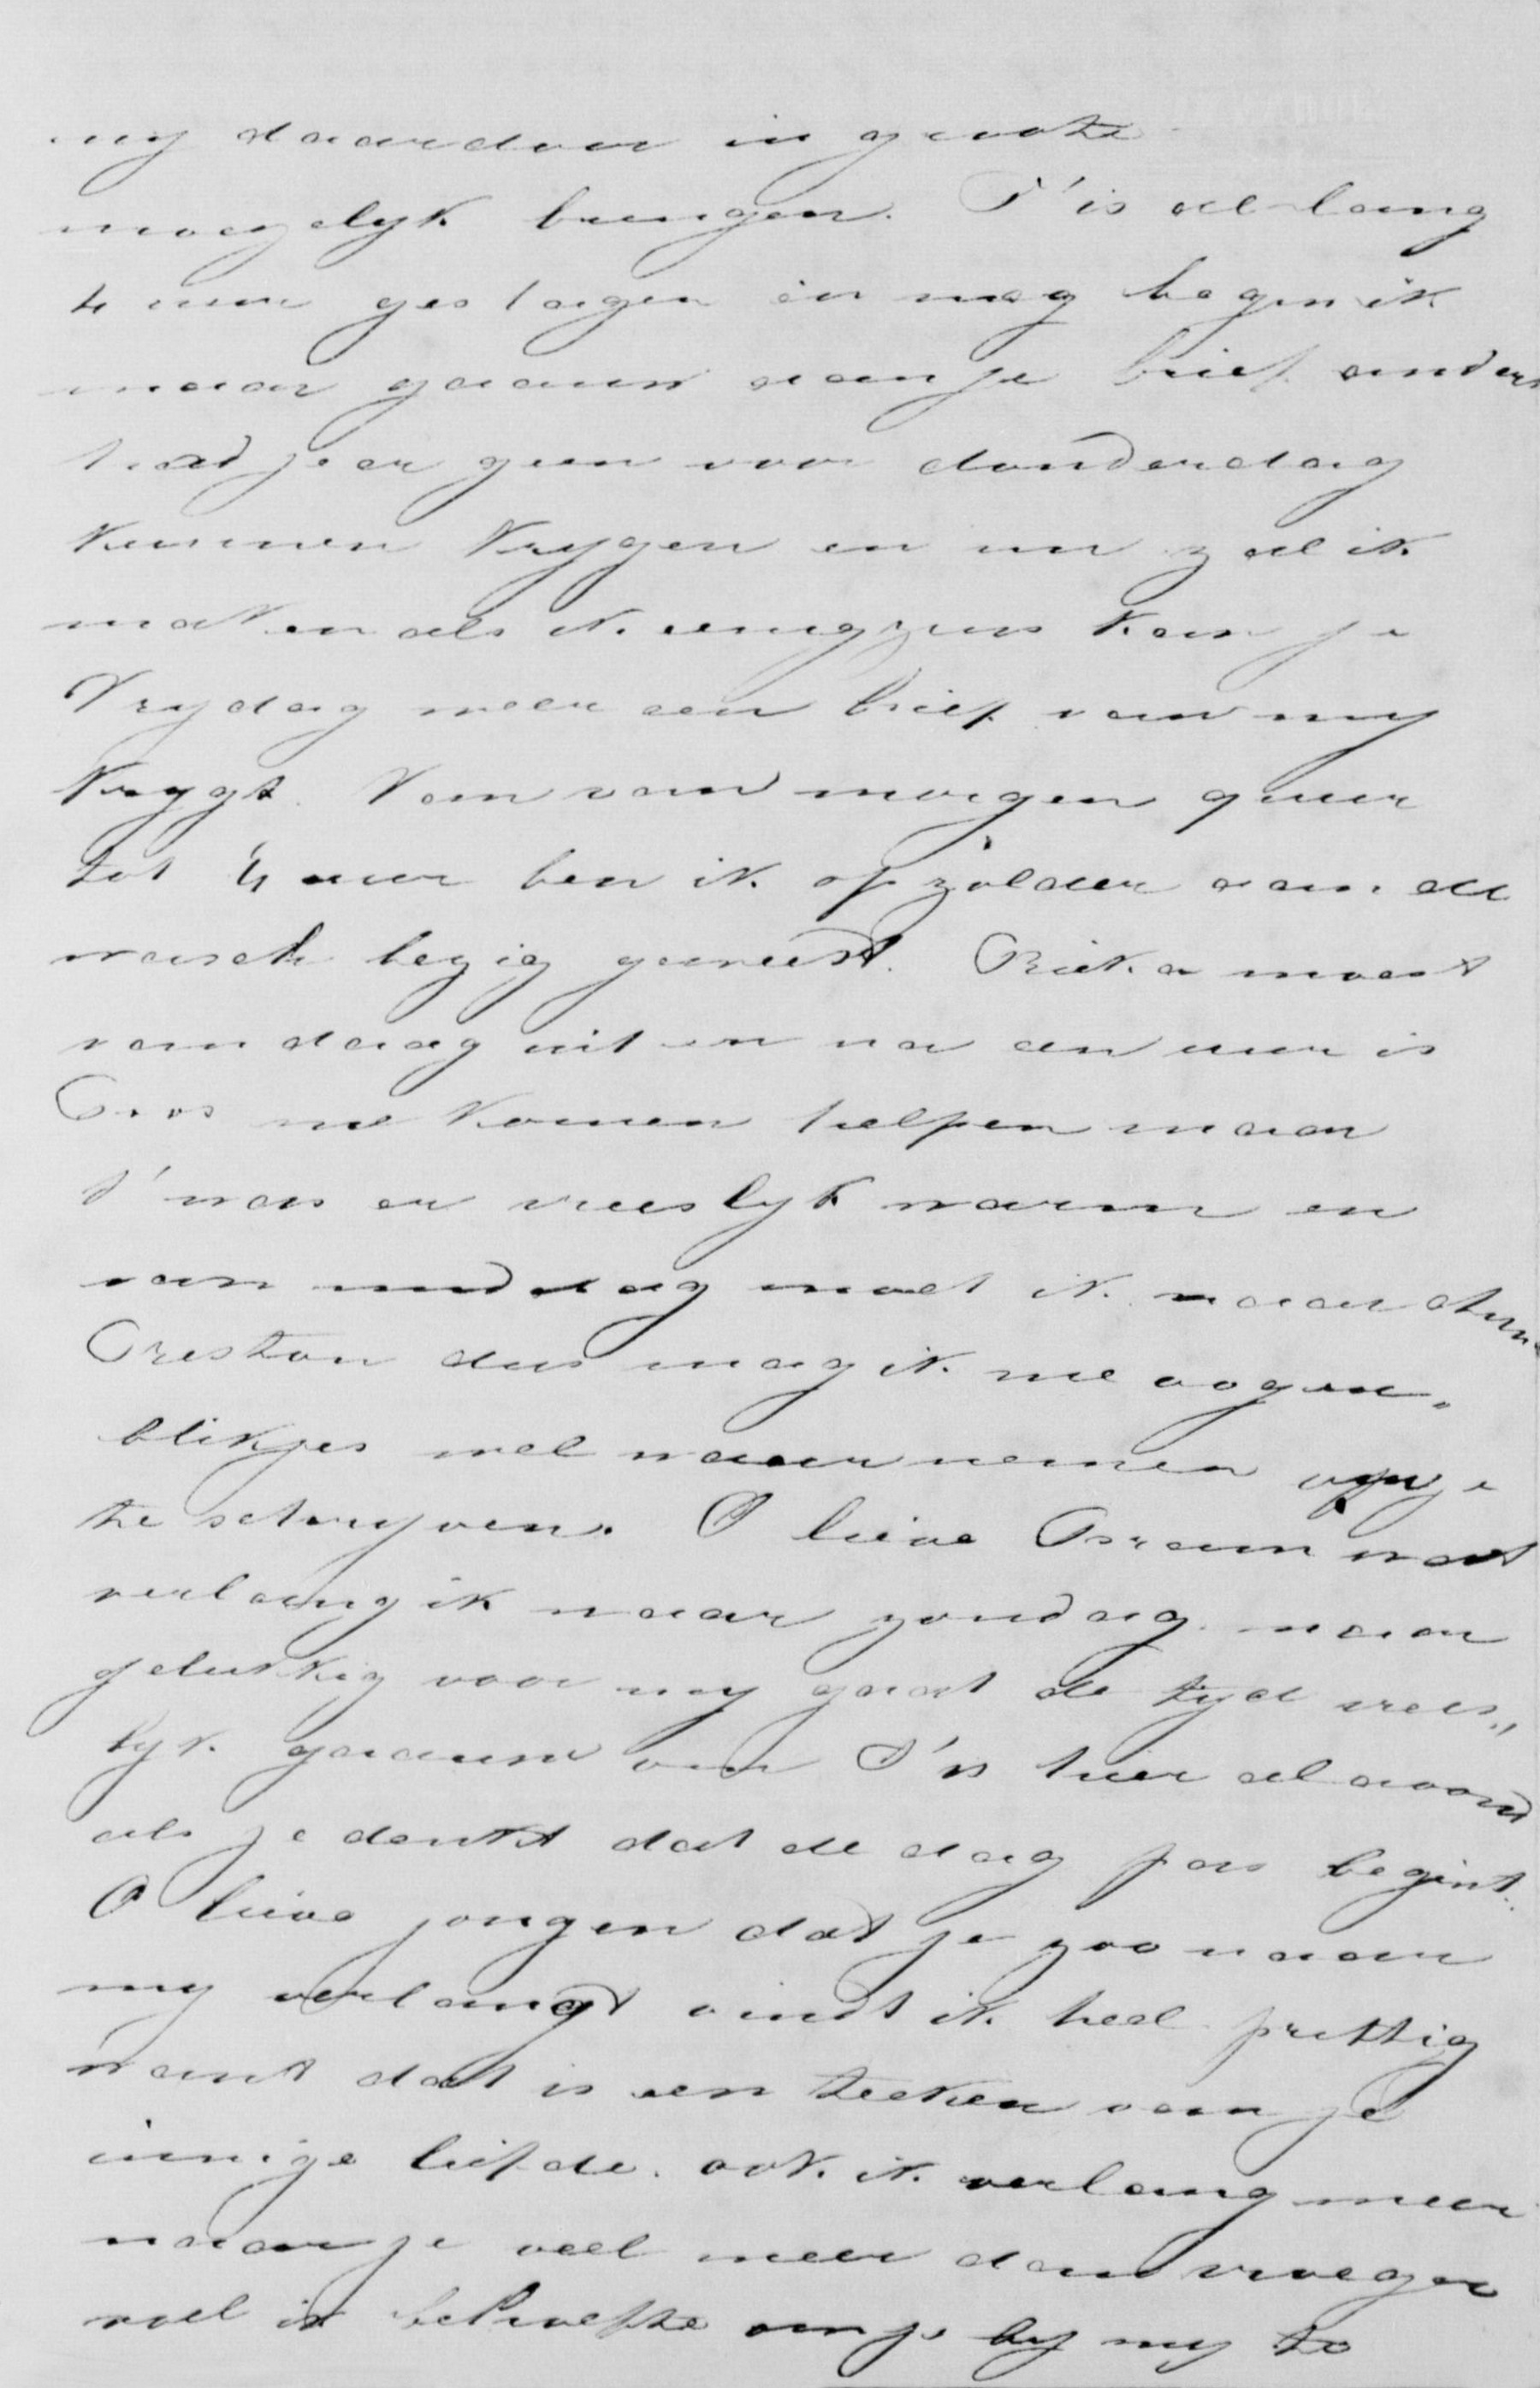 my daardoor in groote
moegelyk brengen. T'is al lang
4 uur geslagen en nog begin ik
maar gaauw aan je brief anders
had je er geen voor donderdag
kunnen krygen en nu zal ik
maken als ik eenigzins kan je
Vrydag weer een brief van my
krygt. Van van morgen 9 uur
tot 4 uur ben ik op zolder aan de
wasch bezig geweest. Rieka moest
van daag uit en na een uur is
Coos me komen helpen maar
t'was er vreeslyk warm en
van middag moet ik naar
Creston dus mag ik me oogen„
blikjes wel waarnemen om je
te schryven. O lieve Bram wat
verlang ik naar zondag. maar
gelukkig voor my gaat de tyd vrees„
lyk gaauw om T'is hier al avond
als je denkt dat de dag pas begint.
O lieve jongen dat je zoo naar
my verlangt vindt ik heel prettig
want dat is een teeken van je
innige liefde. ook ik verlang meer
naar je veel meer dan vroeger
voel ik behoefte om je by my te